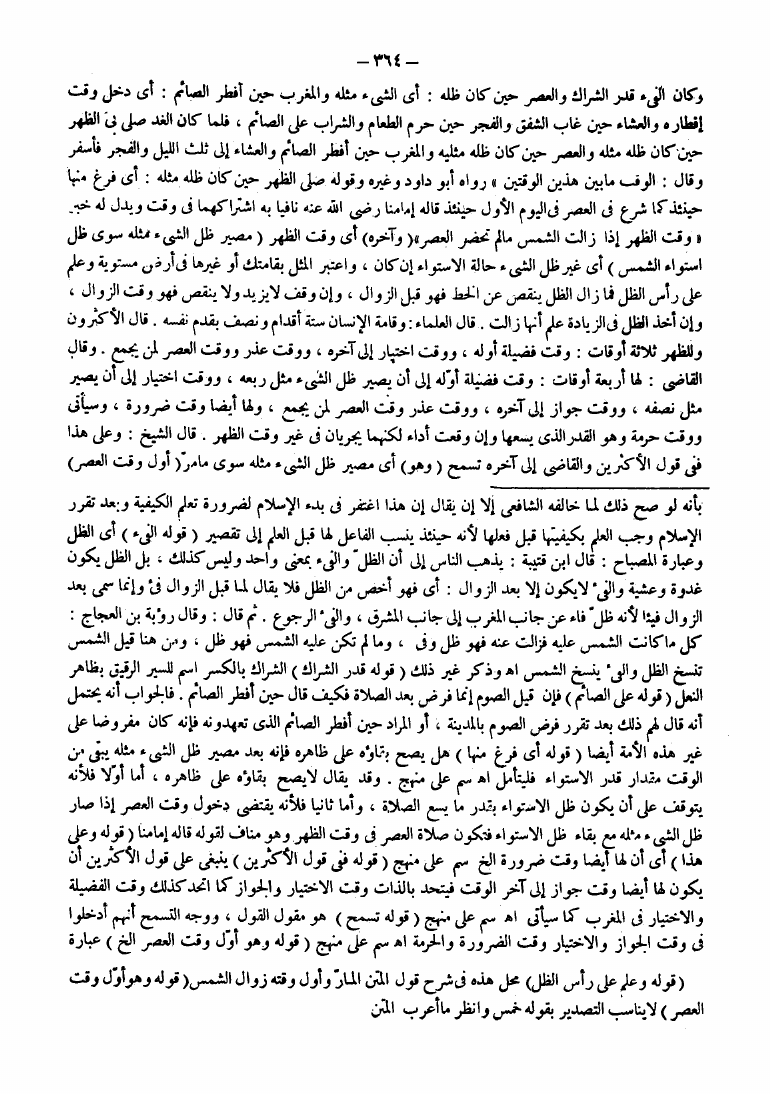 — ٣٦٤ —
وكان الفىء قدر الشراك والعصر حين كان ظله : أى الشىء مثله والمغرب حين أفطر الصائم : أى دخل وقت
إفطاره والعشاء حين غاب الشفق والفجر حين حرم الطعام والشراب على الصائم ، فلما كان الغد صلى بى الظهر
حين كان ظله مثله والعصر حين كان ظله مثليه والمغرب حين أفطر الصائم والعشاء إلى ثلث الليل والفجر فأسفر
وقال : الوقت مابين هذين الوقتين » رواه أبو داود وغيره وقوله صلى الظهر حين كان ظله مثله : أى فرغ منها
حينئذ كما شرع فى العصر فى اليوم الأول حينئذ قاله إمامنا رضى الله عنه نافيا به اشتراكهما فى وقت ويدل له خبر
« وقت الظهر إذا زالت الشمس مالم تحضر العصر»(وآخره) أى وقت الظهر ( مصير ظل الشىء مثله سوى ظل
استواء الشمس ) أى غير ظل الشىء حالة الاستواء إن كان ، واعتبر المثل بقامتك أو غيرها فى أرض مستوية وعلم
على رأس الظل فما زال الظل ينقص عن الخط فهو قبل الزوال ، وإن وقف لايزيد ولا ينقص فهو وقت الزوال ،
وإن أخذ الظل فى الزيادة علم أنها زالت . قال العلماء : وقامة الإنسان ستة أقدام ونصف بقدم نفسه . قال الأكثرون
وللظهر ثلاثة أوقات : وقت فضيلة أوله ، ووقت اختيار إلى آخره ، ووقت عذر ووقت العصر لمن يجمع . وقال
القاضى : لها أربعة أوقات : وقت فضيلة أوّله إلى أن يصير ظل الشىء مثل ربعه ، ووقت اختيار إلى أن يصير
مثل نصفه ، ووقت جواز إلى آخره ، ووقت عذر وقت العصر لمن يجمع ، ولها أيضا وقت ضرورة ، وسيأتى
ووقت حرمة وهو القدر الذى يسعها وإن وقعت أداء لكنهما يجريان فى غير وقت الظهر . قال الشيخ : وعلى هذا
ففى قول الأكثرين والقاضى إلى آخره تسمح ( وهو) أى مصير ظل الشىء مثله سوى مامر( أول وقت العصر)
بأنه لو صح ذلك لما خالفه الشافعى إلا إن يقال إن هذا اغتفر فى بدء الإسلام لضرورة تعلم الكيفية وبعد تقرر
الإسلام وجب العلم بكيفيتها قبل فعلها لأنه حينئذ ينسب الفاعل لها قبل العلم إلى تقصير ( قوله الفىء ) أى الظل
وعبارة المصباح : قال ابن قتيبة : يذهب الناس إلى أن الظلّ والفىء بمعنى واحد وليس كذلك ، بل الظل يكون
غدوة وعشية والفىء لايكون إلا بعد الزوال : أى فهو أخص من الظل فلا يقال لما قبل الزوال فىء وإنما سمى بعد
الزوال فيئا لأنه ظلّ فاء عن جانب المغرب إلى جانب المشرق ، والفىء الرجوع . ثم قال : وقال رؤبة بن العجاج :
كل ما كانت الشمس عليه فزالت عنه فهو ظل وفى ، وما لم تكن عليه الشمس فهو ظل ، ومن هنا قيل الشمس
تنسخ الظل والفىء ينسخ الشمس اه وذكر غير ذلك ( قوله قدر الشراك ) الشراك بالكسر اسم للسير الرقيق بظاهر
النعل ( قوله على الصائم ) فإن قيل الصوم إنما فرض بعد الصلاة فكيف قال حين أفطر الصائم . فالجواب أنه يحتمل
أنه قال لهم ذلك بعد تقرر فرض الصوم بالمدينة ، أو المراد حين أفطر الصائم الذى تعهدونه فإنه كان مفروضا على
غير هذه الأمة أيضا ( قوله أى فرغ منها ) هل يصح بقاؤه على ظاهره فإنه بعد مصير ظل الشىء مثله يبقى من
الوقت مقدار قدر الاستواء فليتأمل اه سم على منهج . وقد يقال لايصح بقاؤه على ظاهره ، أما أوّلا فلأنه
يتوقف على أن يكون ظل الاستواء بقدر ما يسع الصلاة ، وأما ثانيا فلأنه يقتضى دخول وقت العصر إذا صار
ظل الشىء مثله مع بقاء ظل الاستواء فتكون صلاة العصر فى وقت الظهر وهو مناف لقوله قاله إمامنا ( قوله وعلى
هذا ) أى أن لها أيضا وقت ضرورة الخ سم على منهج ( قوله ففى قول الأكثرين ) ينبغى على قول الأكثرين أن
يكون لها أيضا وقت جواز إلى آخر الوقت فيتحد بالذات وقت الاختيار والجواز كما اتحد كذلك وقت الفضيلة
والاختيار فى المغرب كما سيأتى اه سم على منهج ( قوله تسمح ) هو مقول القول ، ووجه التسمح أنهم أدخلوا
فى وقت الجواز والاختيار وقت الضرورة والحرمة اه سم على منهج ( قوله وهو أوّل وقت العصر الخ ) عبارة
( قوله وعلم على رأس الظل) محل هذه فى شرح قول المتن المارّ وأول وقته زوال الشمس( قوله وهو أوّل وقت
العصر ) لايناسب التصدير بقوله خمس وانظر ما أعرب المتن